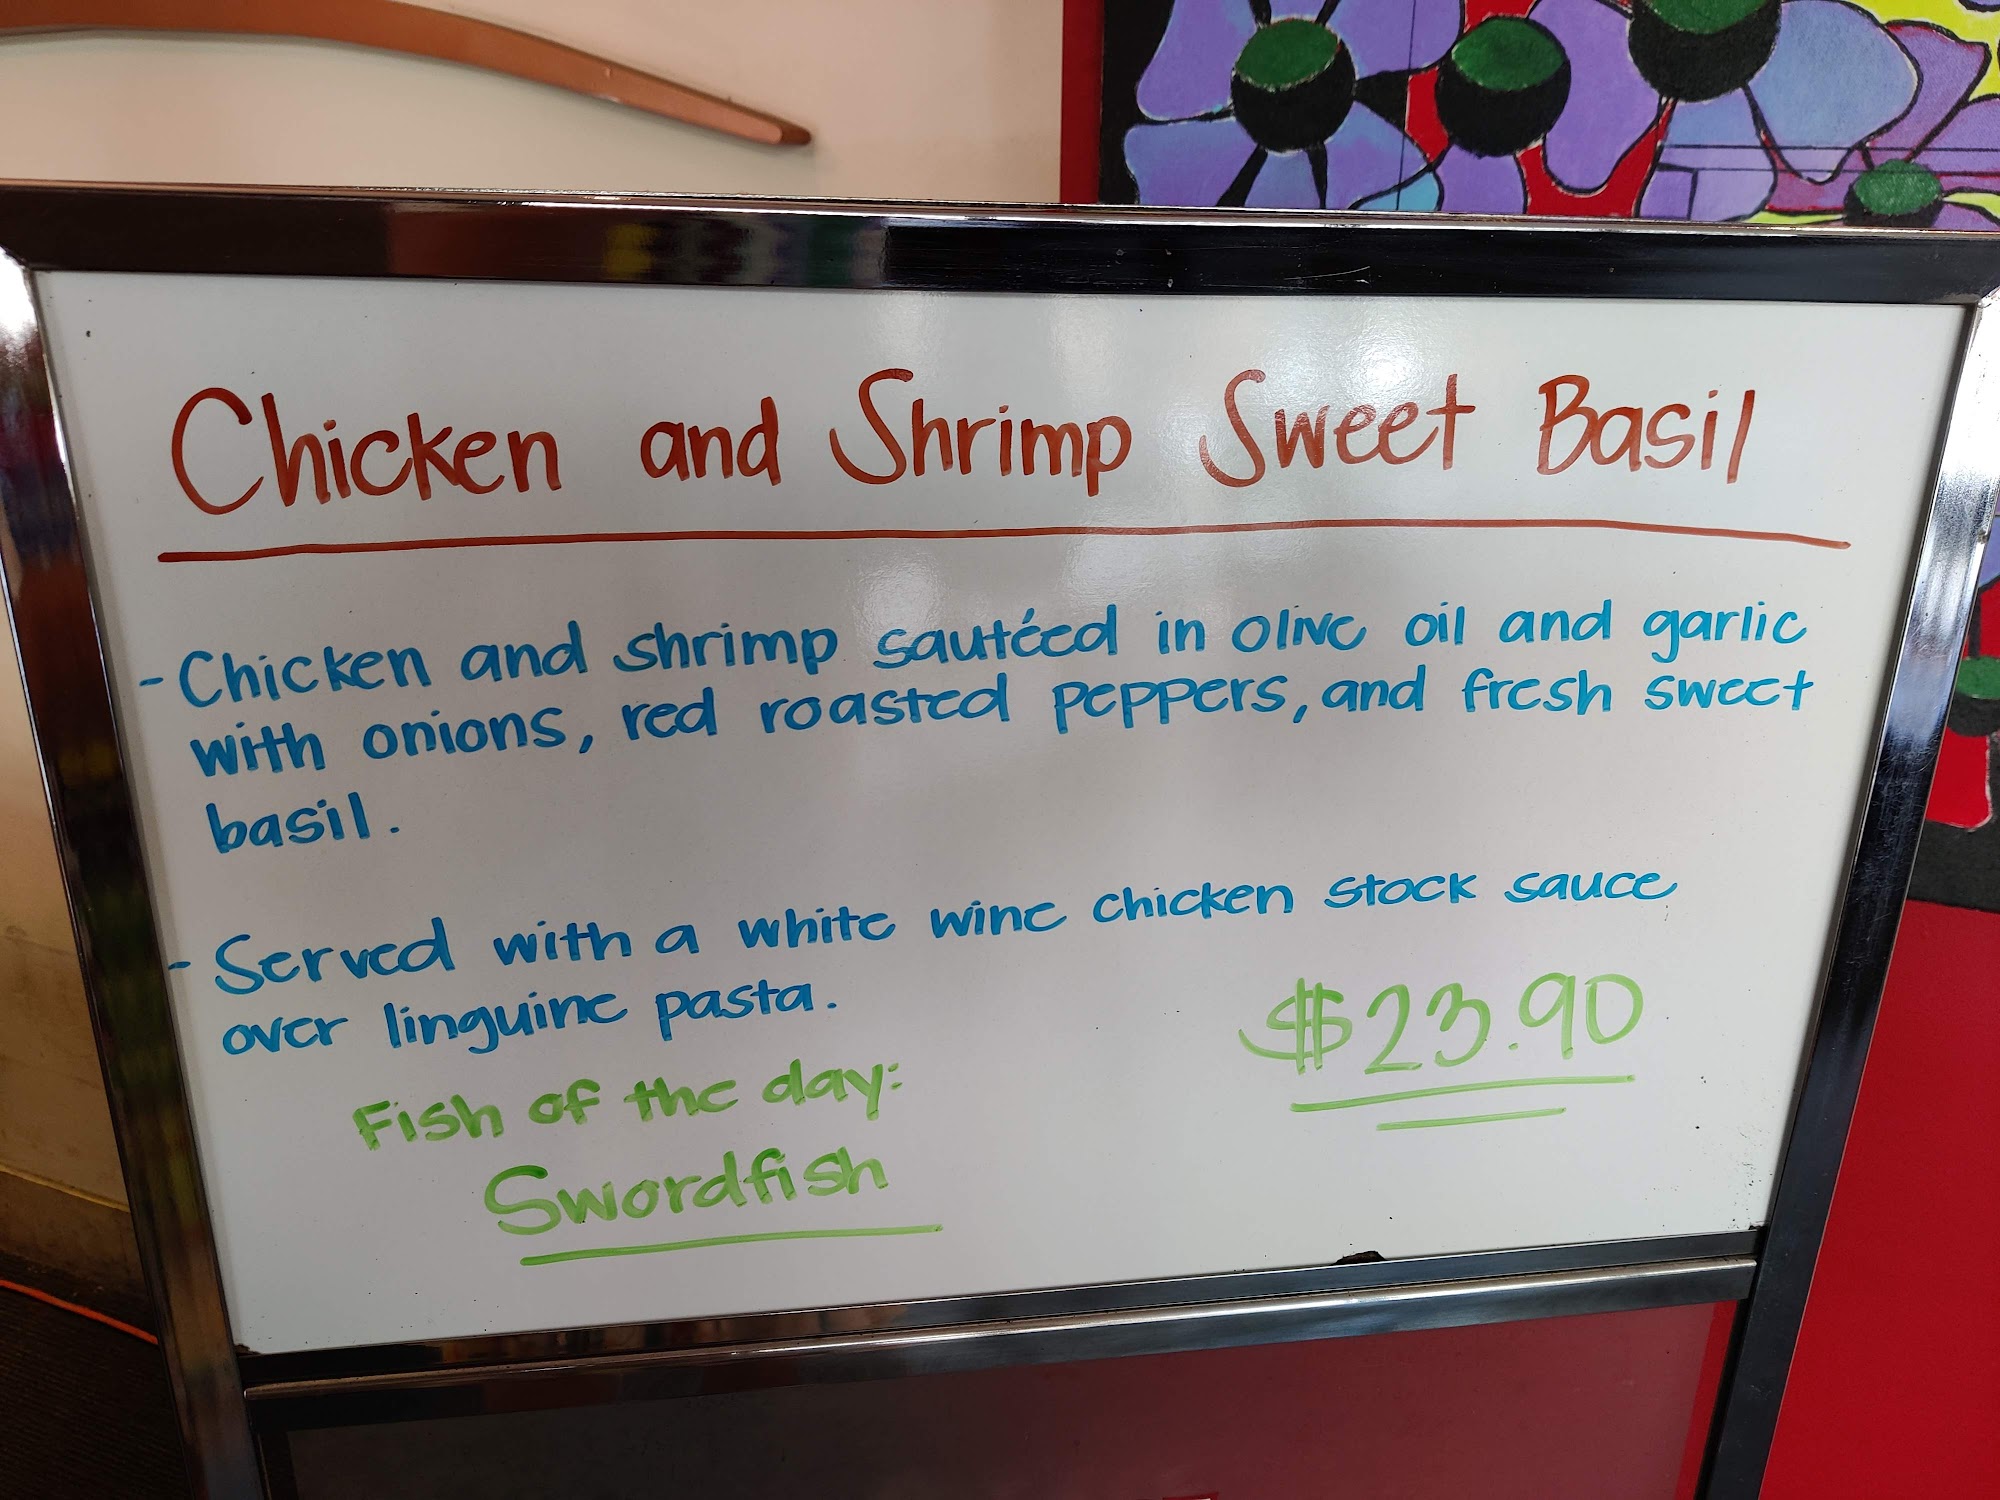 Chicken and Shrimp Sweet Basil
- Chicken and shrimp sautéed in olive oil and garlic
with onions, red roasted peppers, and fresh sweet
basil.
- Served with a white wine chicken stock sauce
over linguine pasta.
$23.90
Fish of the day:
Swordfish